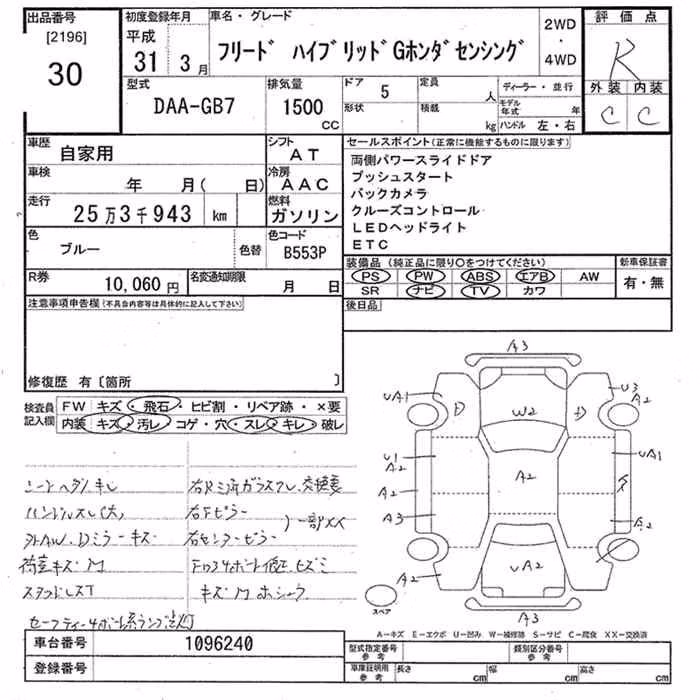 出品番号
[2196]
30
初度登録年月
平成
31 3月
車名・グレード
フリード ハイブリッドGホンダセンシング
2WD
・
4WD
評価点
R
外装 内装
C C
型式
DAA-GB7
排気量
1500
CC
ドア 5
形状
定員
人
積載
kg
ディーラー・並行
モデル年式 年
ハンドル 左・右
車歴
自家用
シフト
AT
車検
年 月( 日)
冷房
AAC
走行
25万3千943 km
燃料
ガソリン
色
ブルー
色替
色コード
B553P
R券
10,060円
名変通知期限
月 日
セールスポイント(正常に機能するものに限ります)
両側パワースライドドア
プッシュスタート
バックカメラ
クルーズコントロール
LEDヘッドライト
ETC
装備品(純正品に限り○をつけてください)
PS PW ABS エアB AW
SR ナビ TV カワ
新車保証書
有・無
後日品
注意事項申告欄(不具合内容等は具体的に記入して下さい)
修復歴 有〔箇所 〕
検査員
記入欄
FW キズ・飛石・ヒビ割・リペア跡・×要
内装 キズ・汚レ・コゲ・穴・スレ・キレ・破レ
ハンドルスレ(大)
外AW、Dミラーキズ
荷室キズM
スタッドレスT
右Fピラー
右センターピラー
一部XX
A3
UA1
U3
A2
D
D
W2
U1
A2
A2
A3
A2
UA1
A2
A2
UA2
A2
A3
スペア
A-キズ E-エクボ U-凹み W-補修跡 S-サビ C-腐食 XX-交換済
車台番号
1096240
登録番号
型式指定番号
参考
類別区分番号
参考
車庫証明用
参考
長さ cm
幅 cm
高さ cm